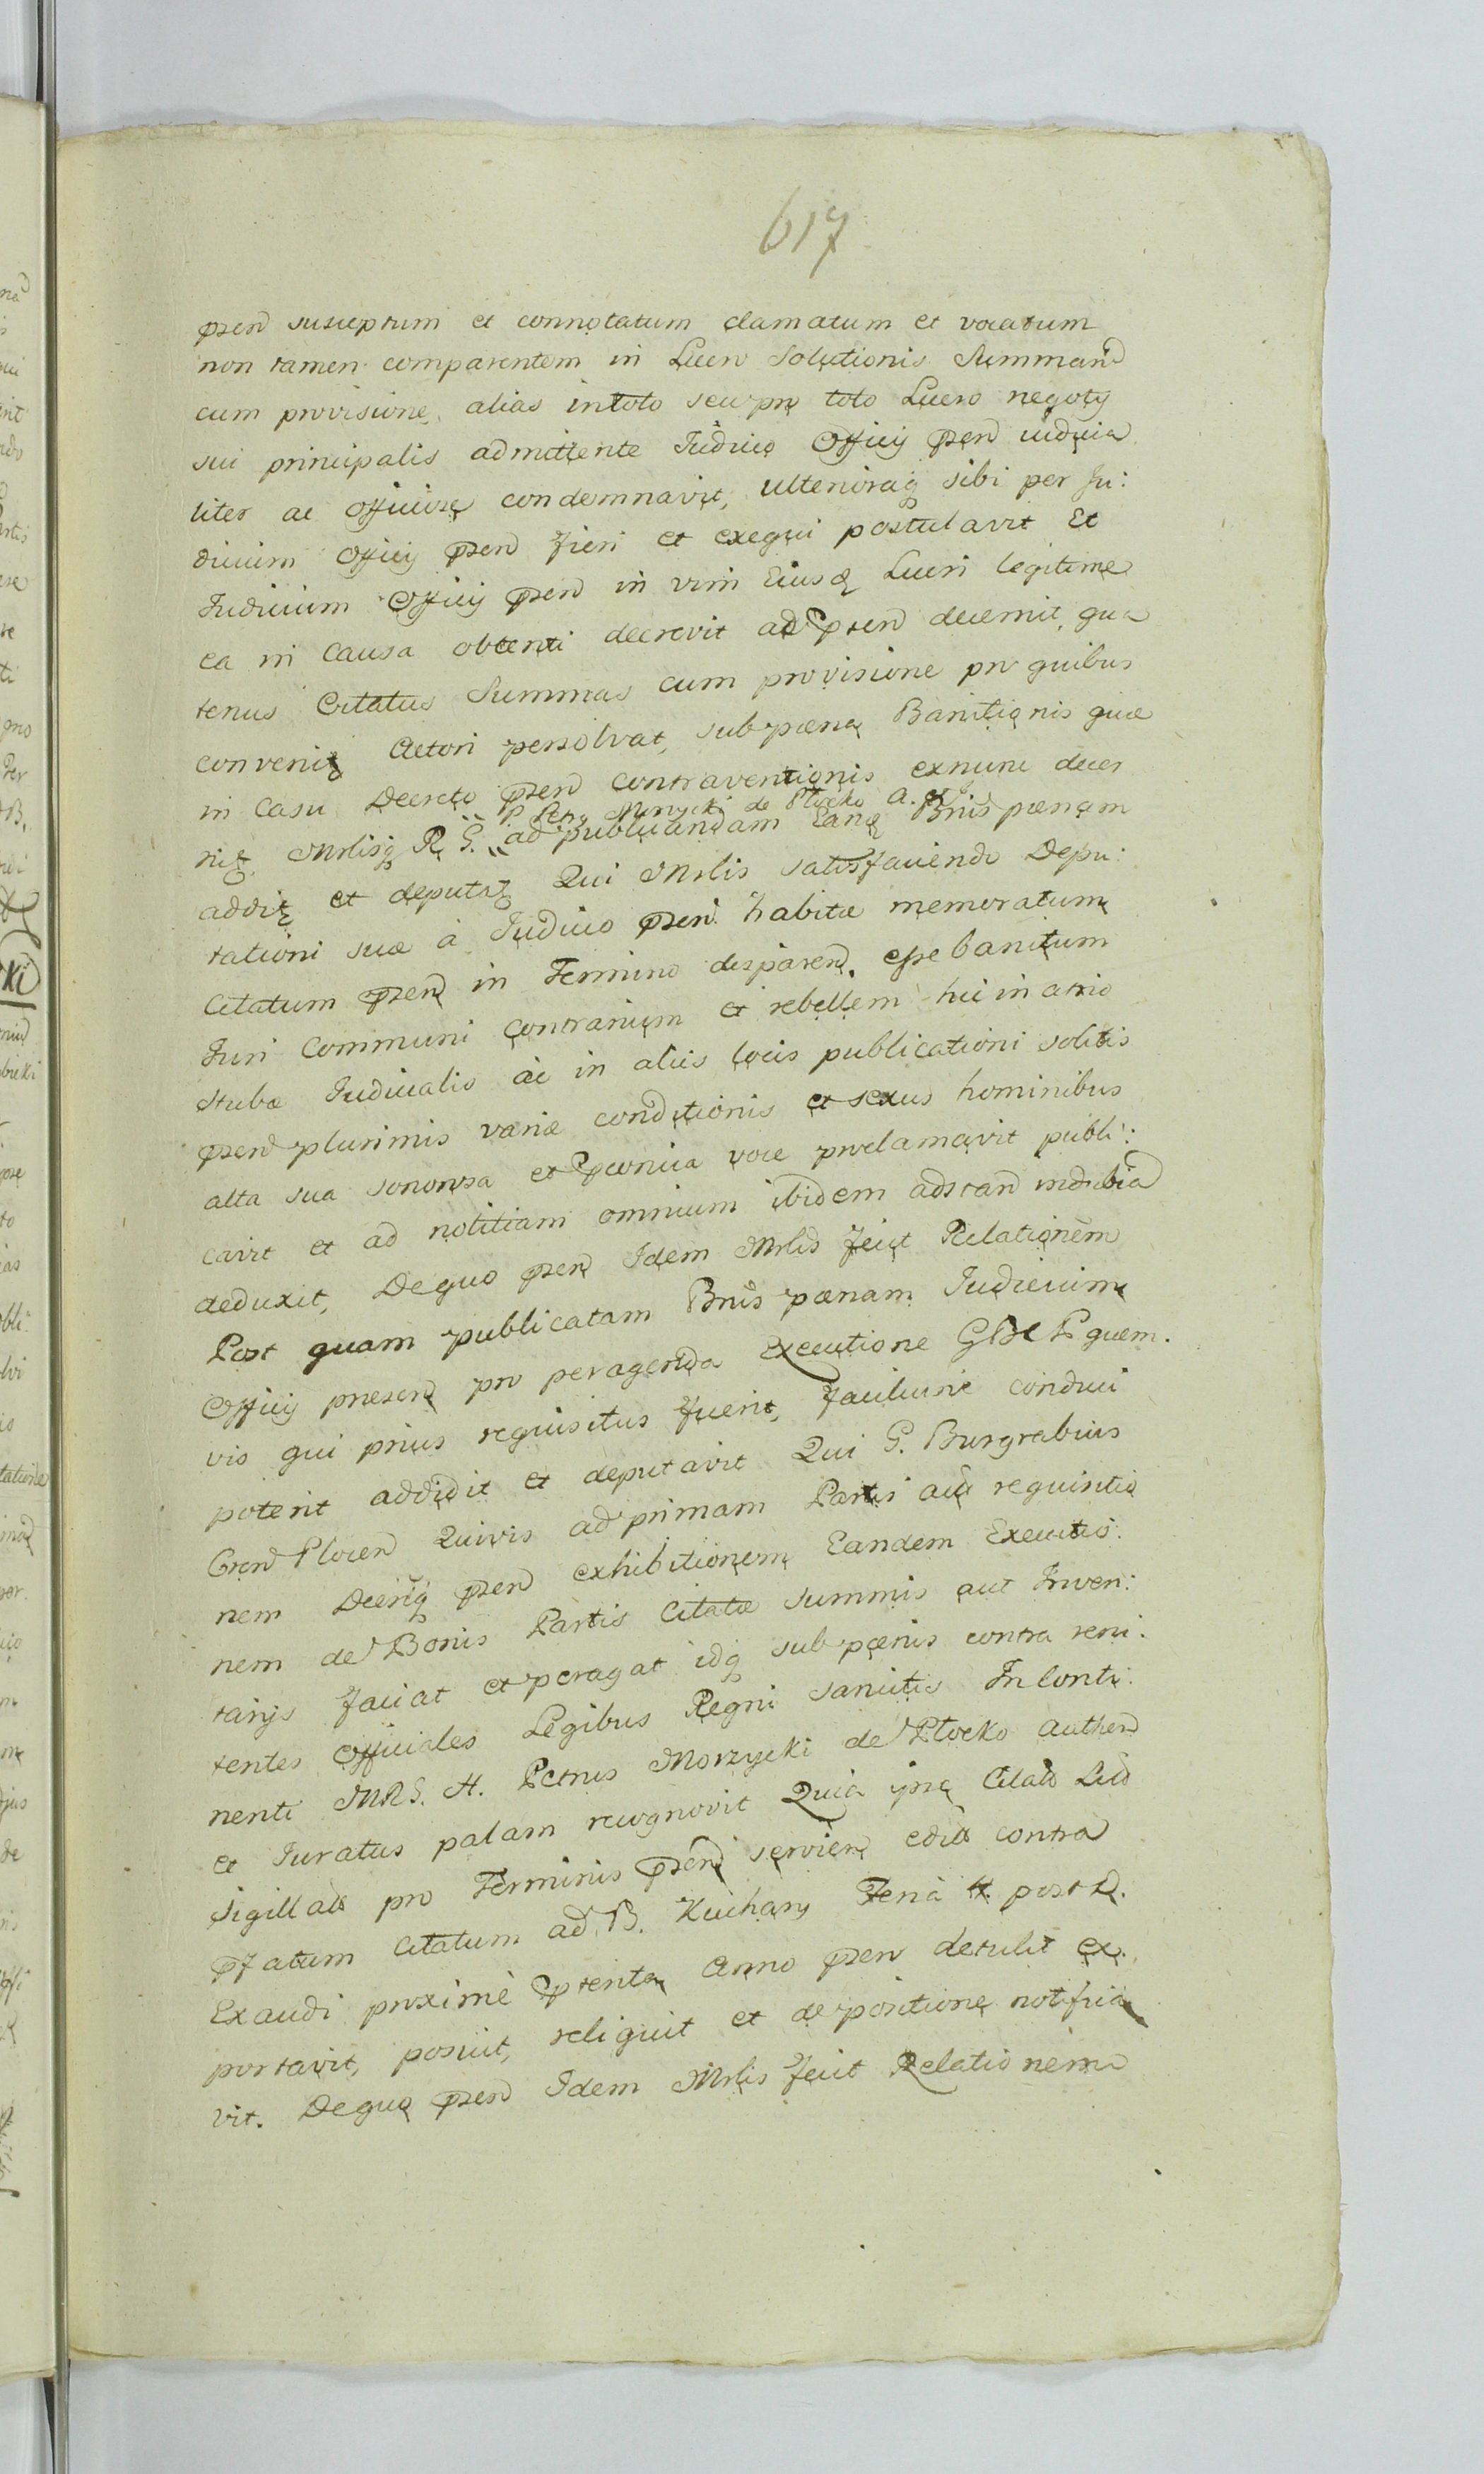 617
pzen susceptum et connotatum clamatum et vocatum
non tamen comparentem in Lucro Solutionis Summarũ
cum provisione, alias in toto seu pro toto Lucro negotÿ
sui principalis admittente Iudicio Officÿ pzen iudicia
liter ac officiose condemnavit, ulterioraq sibi per Iu:
dicium Officÿ pzen fieri et exequi postulavit Et
Iudicium Officÿ pzen in vim Eiusd Lucri legitime
ea in Causa obtenti decrevit ad pzen decernit, qua
tenus Citatus Summas cum provisione pro quibus
convenit Actori persolvat, sub pæna Banitionis quæ
in Casu Decreto pzen contraventionis exnunc decer
P Petrũ Morzycki de Płocko A. et J
nit, Mrlisq R. G. ad publicandam Eand Bnis pænam
addit et deputat Qui Mrlis satisfaciendo Depu:
tationi suæ a Iudicio pzen habitæ memoratum
Citatum pzen in Termino disparen. esse banitum
Iuri Communi contrarium et rebellem hic in atrio
Stubæ Iudicialis ac in aliis locis publicationi solitis
pzen plurimis variæ conditionis et sexus hominibus
alta sua sonorosa et præconica voce proclamavit publi:
cavit et ad notitiam omnium ibidem adstan indubia
deduxit, De quo pzen Idem Mrlis fecit Relationem
Post quam publicatam Bnis pænam Iudicium
Officÿ præsen pro peragenda Executione GB C P quem.
vis qui prius requisitus fuerit, faciliusve conduci
poterit addidit et deputavit Qui G. Burgrabius
Cren Plocen Quivis ad primam Partis aut requisitio
nem Decriq pzen exhibitionem Eandem Executio.
nem de Bonis Partis Citatæ summis aut Inven:
tarÿs faciat et peragat idq sub pænis contra reni:
tentes Officiales Legibus Regni sancitis In Conti:
nenti MRG. H. Petrus Morzycki de Płocko authen
et Iuratus palam recognovit Quia ipse Citaõ Lit
Sigillato pro Terminis pzen servien edito contra
pfatum Citatum ad B. Kuchary Feria post D.
Exaudi proxime pzenta Anno pzen detulit ex.
portavit, posuit, reliquit et de positione notifica
vit. De quo pzen Idem Mrlis fecit Relationem